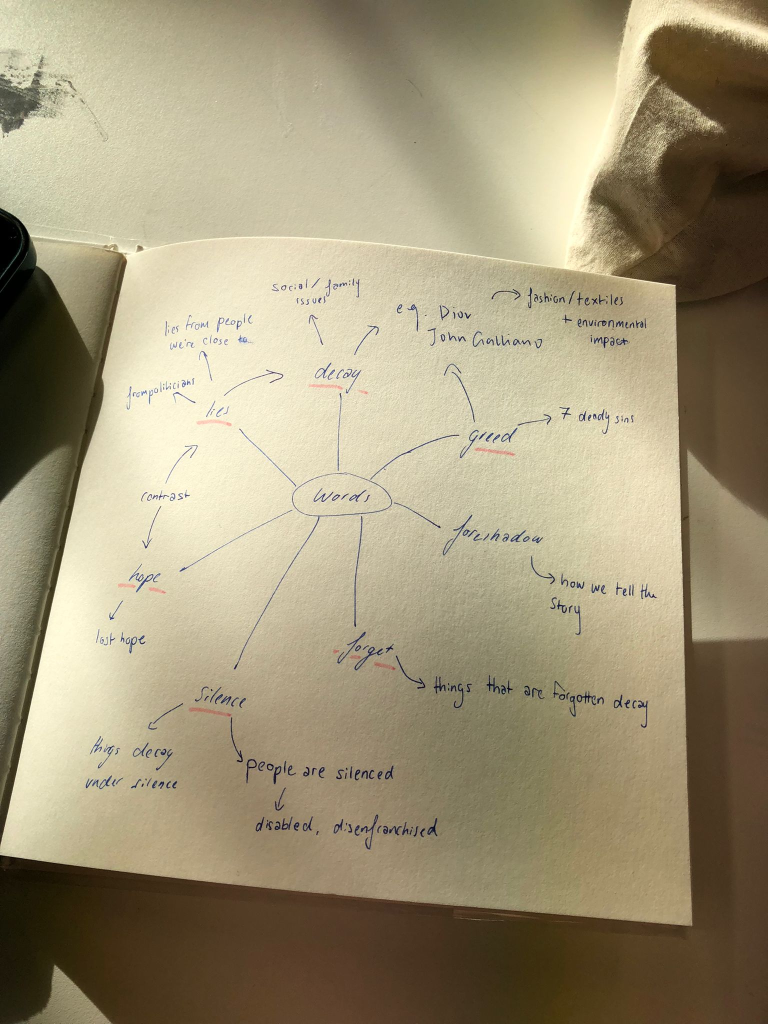 social / family
issues
e.g. Dior
John Galliano
fashion/textiles
+ environmental
impact
lies from people
we're close to
from politicians
lies
decay
greed
7 deadly sins
contrast
Words
foreshadow
how we tell the
story
hope
lost hope
forget
things that are forgotten decay
silence
things decay
under silence
people are silenced
disabled, disenfranchised